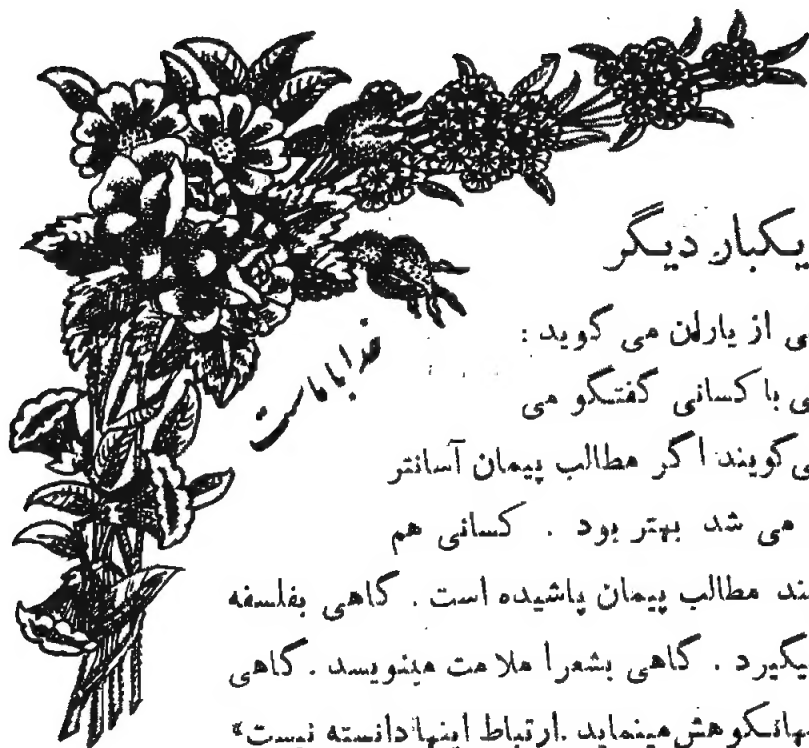 یکبار دیگر
خدا با ماست
ی از یاران می گوید :
ی با کسانی گفتگو می
ی‌گویند اگر مطالب پیمان آسانتر
می شد بهتر بود . کسانی هم
ند مطالب پیمان پاشیده است . گاهی بفلسفه
یگیرد . گاهی بشعرا ملامت مینویسد . گاهی
نکوهش مینماید . ارتباط اینها دانسته نیست»